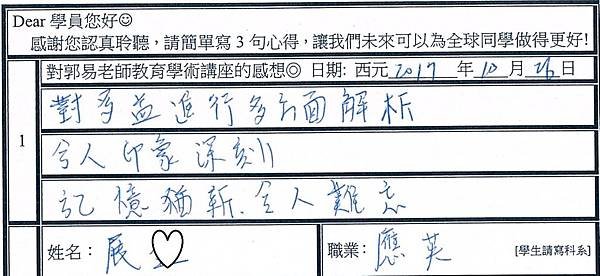 Dear 學員您好☺
感謝您認真聆聽，請簡單寫 3 句心得，讓我們未來可以為全球同學做得更好!
對郭易老師教育學術講座的感想◎ 日期: 西元 2017 年 10 月 26 日
1
對多益進行多方面解析
令人印象深刻
記憶猶新.令人難忘
姓名：展♡ 職業：應英 [學生請寫科系]